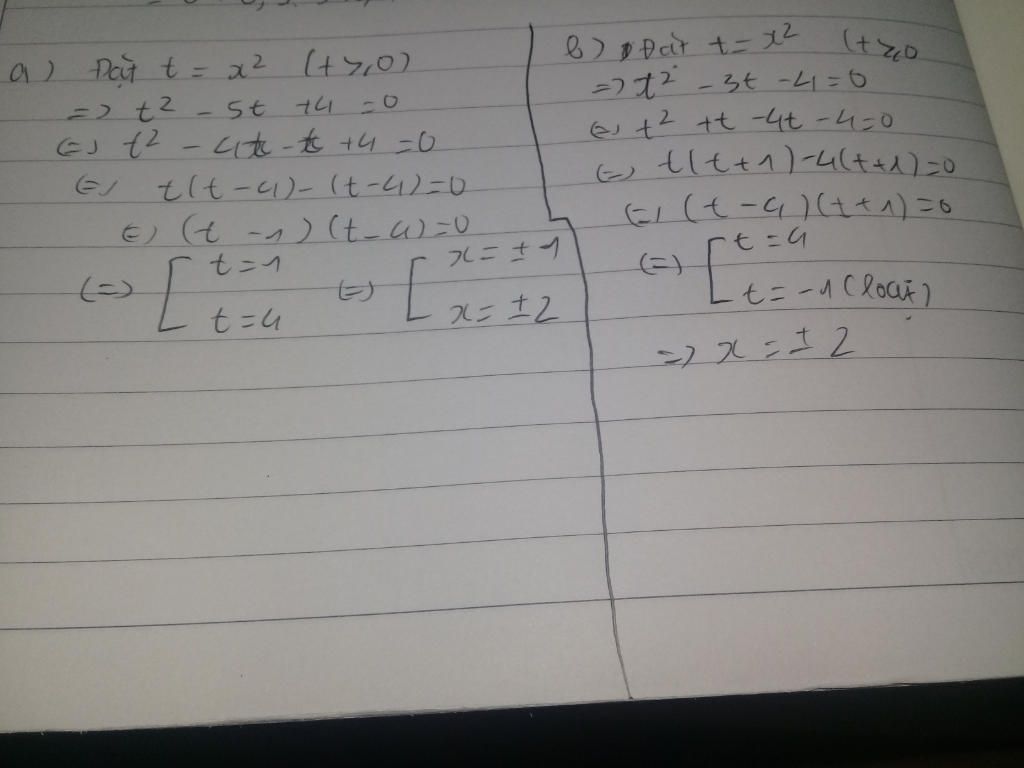 a) Đặt t = x² (t ≥ 0)
=> t² - 5t + 4 = 0
<=> t² - 4t - t + 4 = 0
<=> t(t - 4) - (t - 4) = 0
<=> (t - 1)(t - 4) = 0
<=> [ t = 1 <=> [ x = ± 1
t = 4 x = ± 2
b) Đặt t = x² (t ≥ 0
=> t² - 3t - 4 = 0
<=> t² + t - 4t - 4 = 0
<=> t(t + 1) - 4(t + 1) = 0
<=> (t - 4)(t + 1) = 0
<=> [ t = 4
t = -1 (loại)
=> x = ± 2